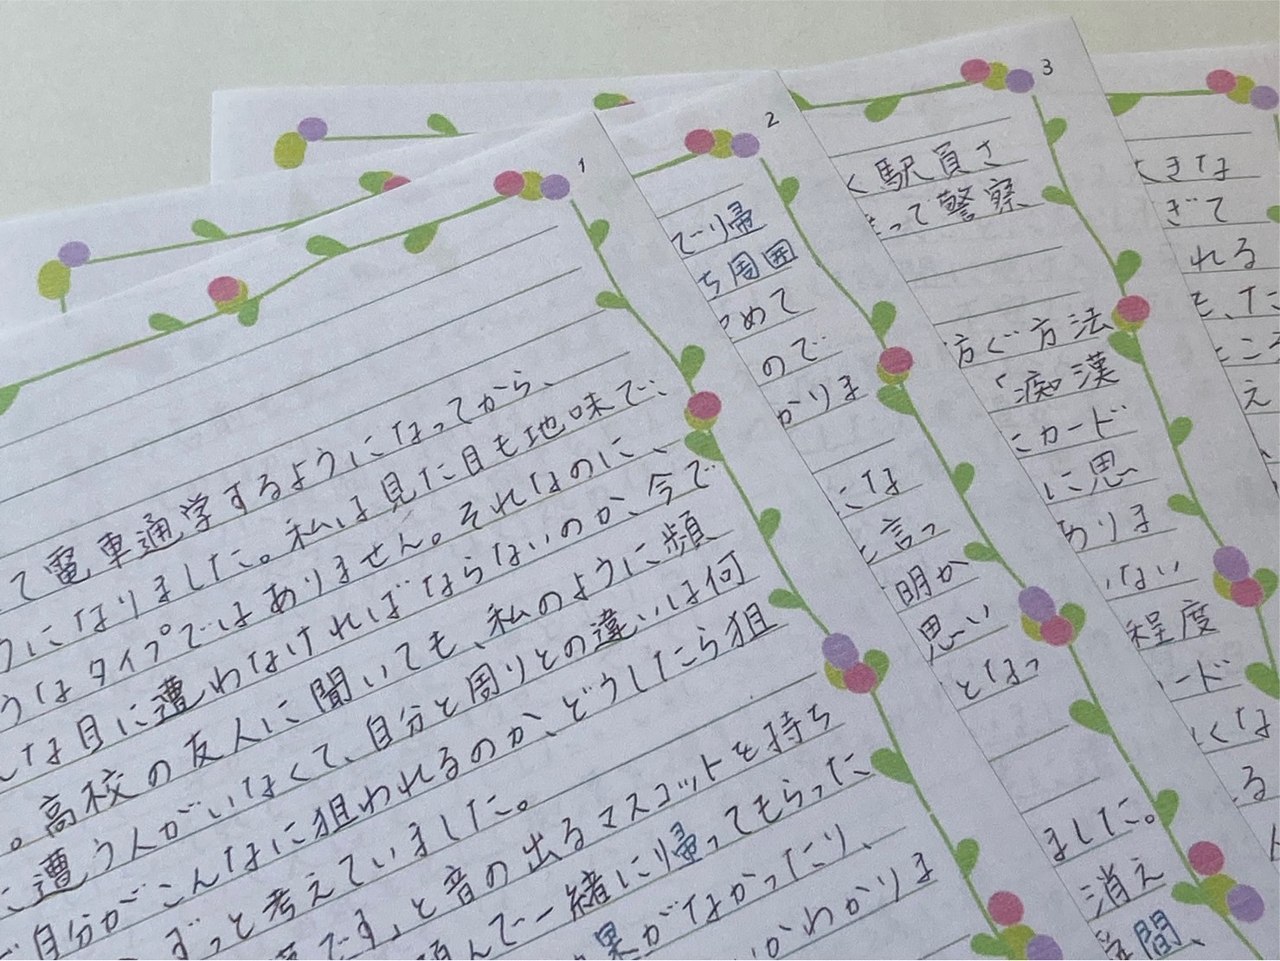 1
て電車通学するようになってから、
うになりました。私は見た目も地味で、
うなタイプではありません。それなのに、
な目に遭わなければならないのか、今で
。高校の友人に聞いても、私のように頻
に遭う人がいなくて、自分と周りとの違いは何
自分がこんなに狙われるのか、どうしたら狙
ずっと考えていました。
です」と音の出るマスコットを持ち
頼んで一緒に帰ってもらった
果がなかったり、
かわかりま
2
でり帰
ち周囲
やめて
ので
かりま
にな
と言っ
明か
思い
となっ
3
く駅員さ
って警察
防ぐ方法
「痴漢
にカード
に思い
ありま
いない
程度
ード
ました。
消え
間、
きな
ぎて
れる
と、た
ところ
え
くな
る